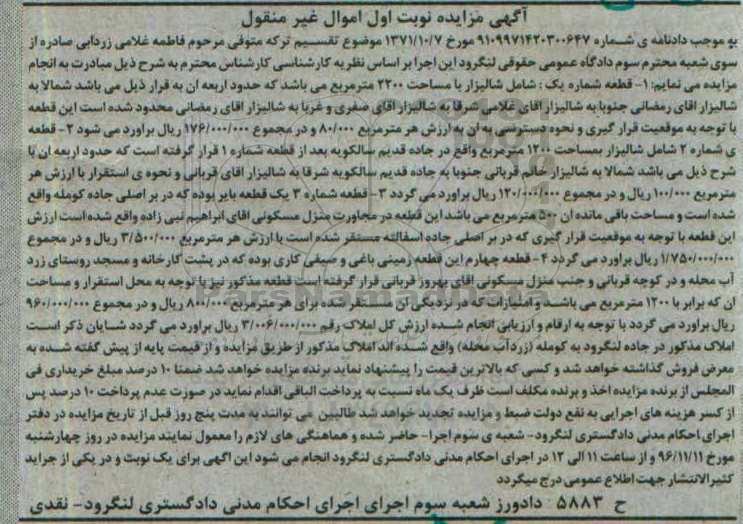 آگهی مزایده نوبت اول اموال غیر منقول
به موجب دادنامه ی شماره ۹۱۰۹۹۷۱۴۲۰۳۰۰۶۴۷ مورخ ۱۳۷۱/۱۰/۷ موضوع تقسیم ترکه متوفی مرحوم فاطمه غلامی زردآبی صادره از
سوی شعبه محترم سوم دادگاه عمومی حقوقی لنگرود این اجرا بر اساس نظریه کارشناسی کارشناس محترم به شرح ذیل مبادرت به انجام
مزایده می نمایم: ۱- قطعه شماره یک : شامل شالیزار با مساحت ۲۲۰۰ مترمربع می باشد که حدود اربعه ان به قرار ذیل می باشد شمالا به
شالیزار اقای رمضانی جنوبا به شالیزار اقای غلامی شرقا به شالیزار اقای صفری و غربا به شالیزار اقای رمضانی محدود شده است این قطعه
با توجه به موقعیت قرار گیری و نحوه دسترسی به ان به ارزش هر مترمربع ۸۰/۰۰۰ و در مجموع ۱۷۶/۰۰۰/۰۰۰ ریال براورد می شود ۲- قطعه
ی شماره ۲ شامل شالیزار بمساحت ۱۲۰۰ مترمربع واقع در جاده قدیم سالکویه بعد از قطعه شماره ۱ قرار گرفته است که حدود اربعه ان با
شرح ذیل می باشد شمالا به شالیزار خانم قربانی جنوبا به جاده قدیم سالکویه شرقا به شالیزار اقای قربانی و نحوه ی استقرار با ارزش هر
مترمربع ۱۰۰/۰۰۰ ریال و در مجموع ۱۲۰/۰۰۰/۰۰۰ ریال براورد می گردد ۳- قطعه شماره ۳ یک قطعه بایر بوده که در بر اصلی جاده کومله واقع
شده است و مساحت باقی مانده ان ۵۰۰ مترمربع می باشد این قطعه در مجاورت منزل مسکونی اقای ابراهیم نبی زاده واقع شده است ارزش
این قطعه با توجه به موقعیت قرار گیری که در بر اصلی جاده اسفالته مستقر شده است با ارزش هر مترمربع ۳/۵۰۰/۰۰۰ ریال و در مجموع
۱/۷۵۰/۰۰۰/۰۰۰ ریال براورد می گردد ۴- قطعه چهارم این قطعه زمینی باغی و صیفی کاری بوده که در پشت کارخانه و مسجد روستای زرد
آب محله و در کوچه قربانی و جنب منزل مسکونی اقای بهروز قربانی قرار گرفته است قطعه مذکور نیز با توجه به محل استقرار و مساحت
ان که برابر با ۱۲۰۰ مترمربع می باشد و امتیازات که در نزدیکی ان مستقر شده برای هر مترمربع ۸۰۰/۰۰۰ ریال و در مجموع ۹۶۰/۰۰۰/۰۰۰
ریال براورد می گردد با توجه به ارقام و ارزیابی انجام شده ارزش کل املاک رقم ۳/۰۰۶/۰۰۰/۰۰۰ ریال براورد می گردد شایان ذکر است
املاک مذکور در جاده لنگرود به کومله (زردآب محله) واقع شده اند املاک مذکور از طریق مزایده و از قیمت پایه از پیش گفته شده به
معرض فروش گذاشته خواهد شد و کسی که بالاترین قیمت را پیشنهاد نماید برنده مزایده خواهد شد ضمنا ۱۰ درصد مبلغ خریداری فی
المجلس از برنده مزایده اخذ و برنده مکلف است ظرف یک ماه نسبت به پرداخت الباقی اقدام نماید در صورت عدم پرداخت ۱۰ درصد پس
از کسر هزینه های اجرایی به نفع دولت ضبط و مزایده تجدید خواهد شد طالبین می توانند به مدت پنج روز قبل از تاریخ مزایده در دفتر
اجرای احکام مدنی دادگستری لنگرود- شعبه ی سوم اجرا- حاضر شده و هماهنگی های لازم را معمول نمایند مزایده در روز چهارشنبه
مورخ ۹۶/۱۱/۱۱ و از ساعت ۱۱ الی ۱۲ در اجرای احکام مدنی دادگستری لنگرود انجام می شود این اگهی برای یک نوبت و در یکی از جراید
کثیرالانتشار جهت اطلاع عمومی درج میگردد
ح ۵۸۸۳ دادورز شعبه سوم اجرای اجرای احکام مدنی دادگستری لنگرود- نقدی